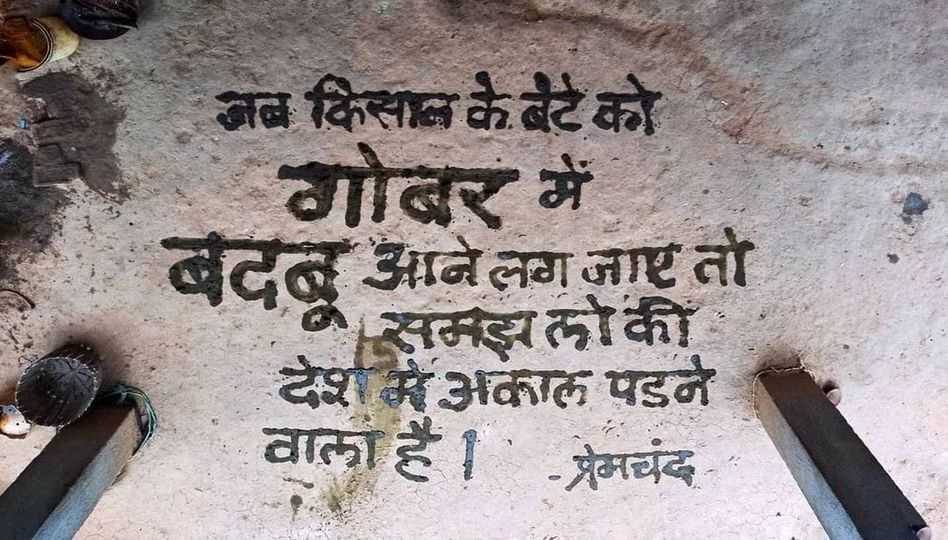 जब किसान के बेटे को
गोबर में
बदबू आने लग जाए तो
समझ लो की
देश में अकाल पडने
वाला है।
- प्रेमचंद